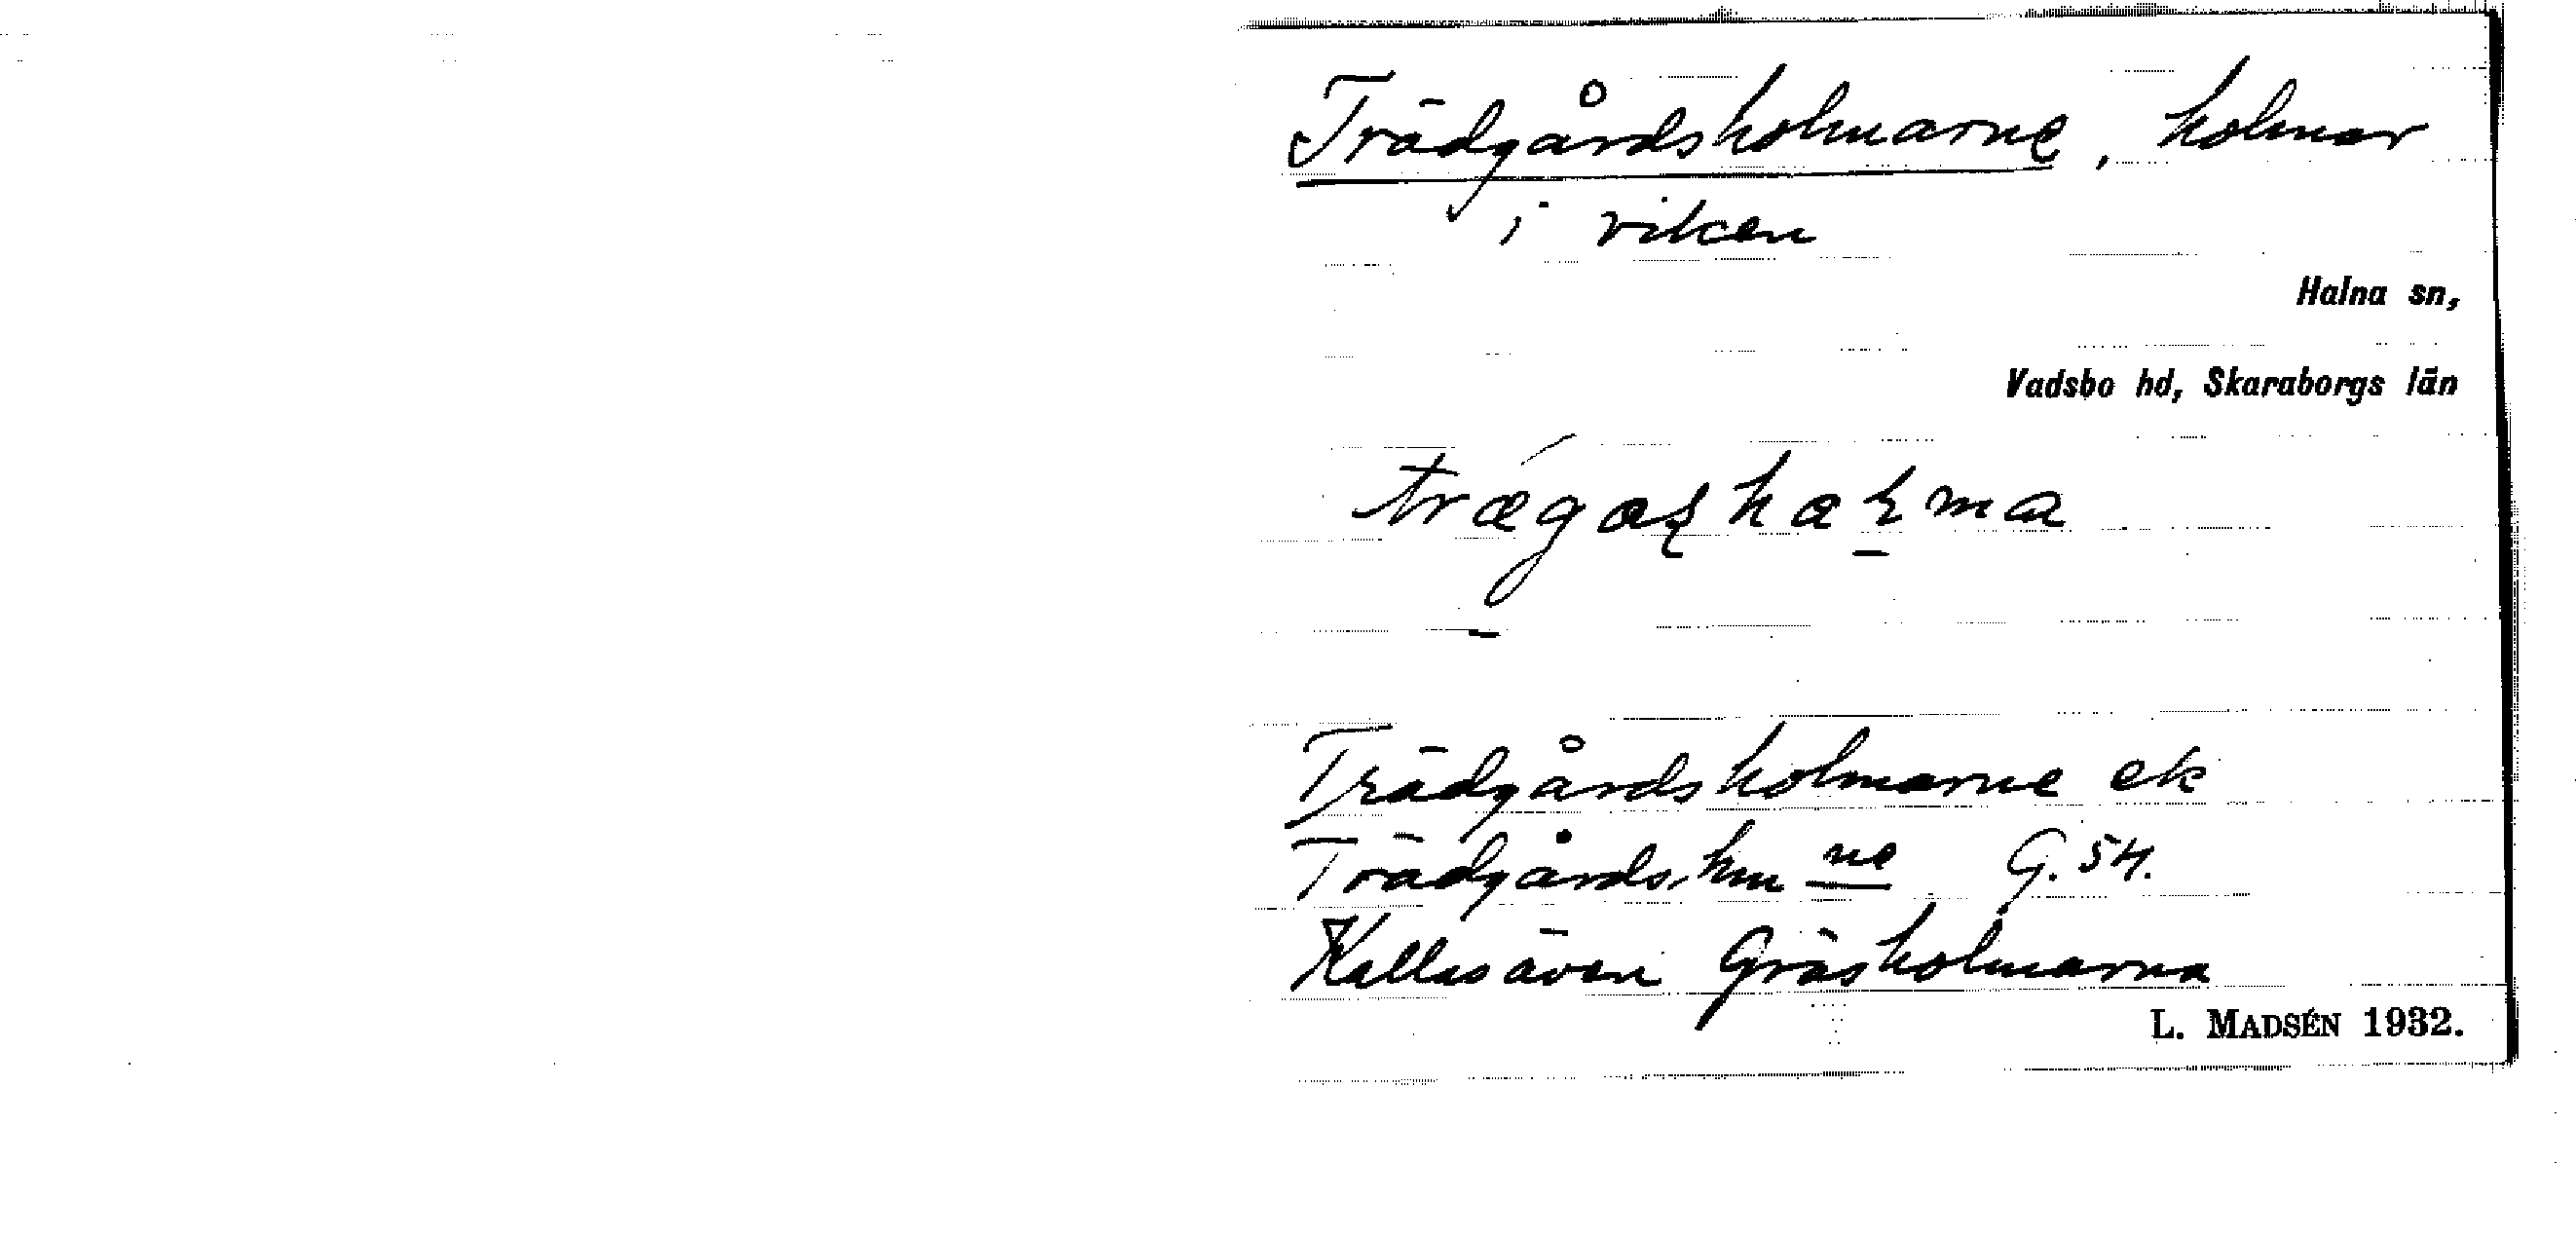 Trädgårdsholmarne, holmar
i viken
Halna sn,
Vadsbo hd, Skaraborgs län
Trädgårdsholmarne ek
Trädgårds.hm ne G. 54.
Kallas även Gräsholmarna
L. MADSÉN 1932.